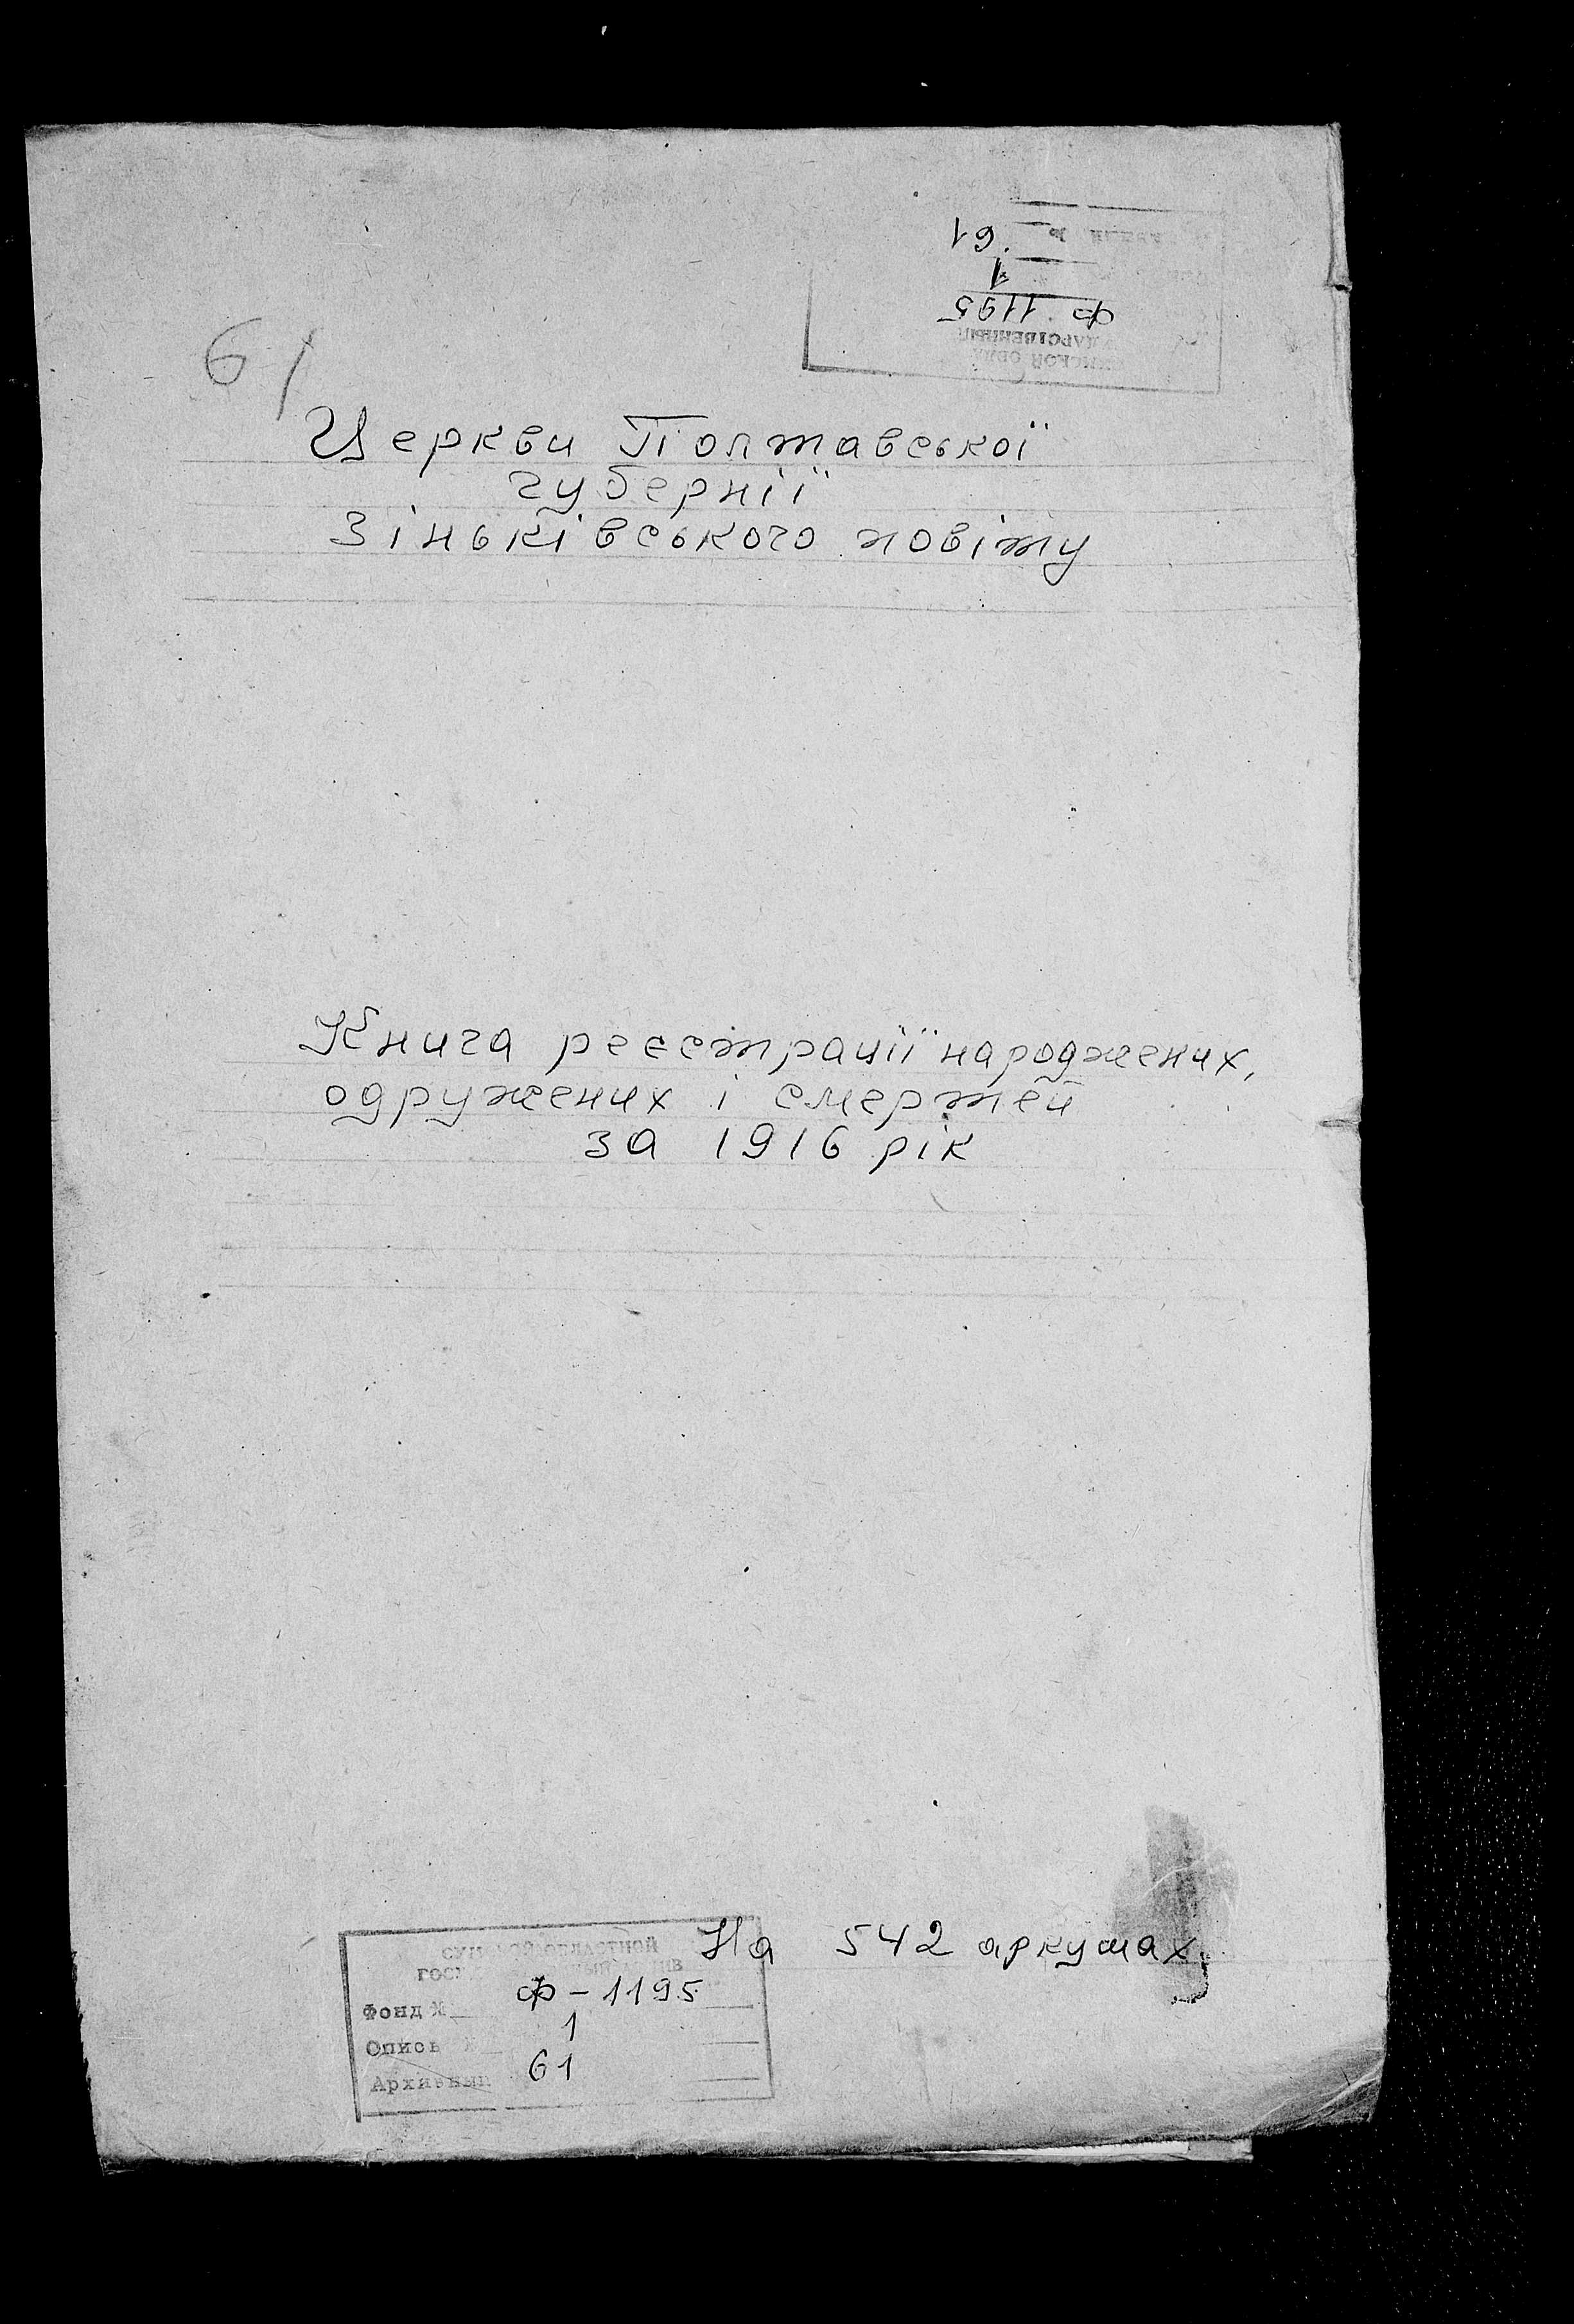 61
1
ф 1195
61
Церкви Полтавської
губернії
Зіньківського повіту
Книга реєстрації народжених,
одружених і смертей
за 1916 рік
На 542 аркушах
ОБЛАСТНОЙ
Фонд № ф-1195
Опись 1
Архивный 61